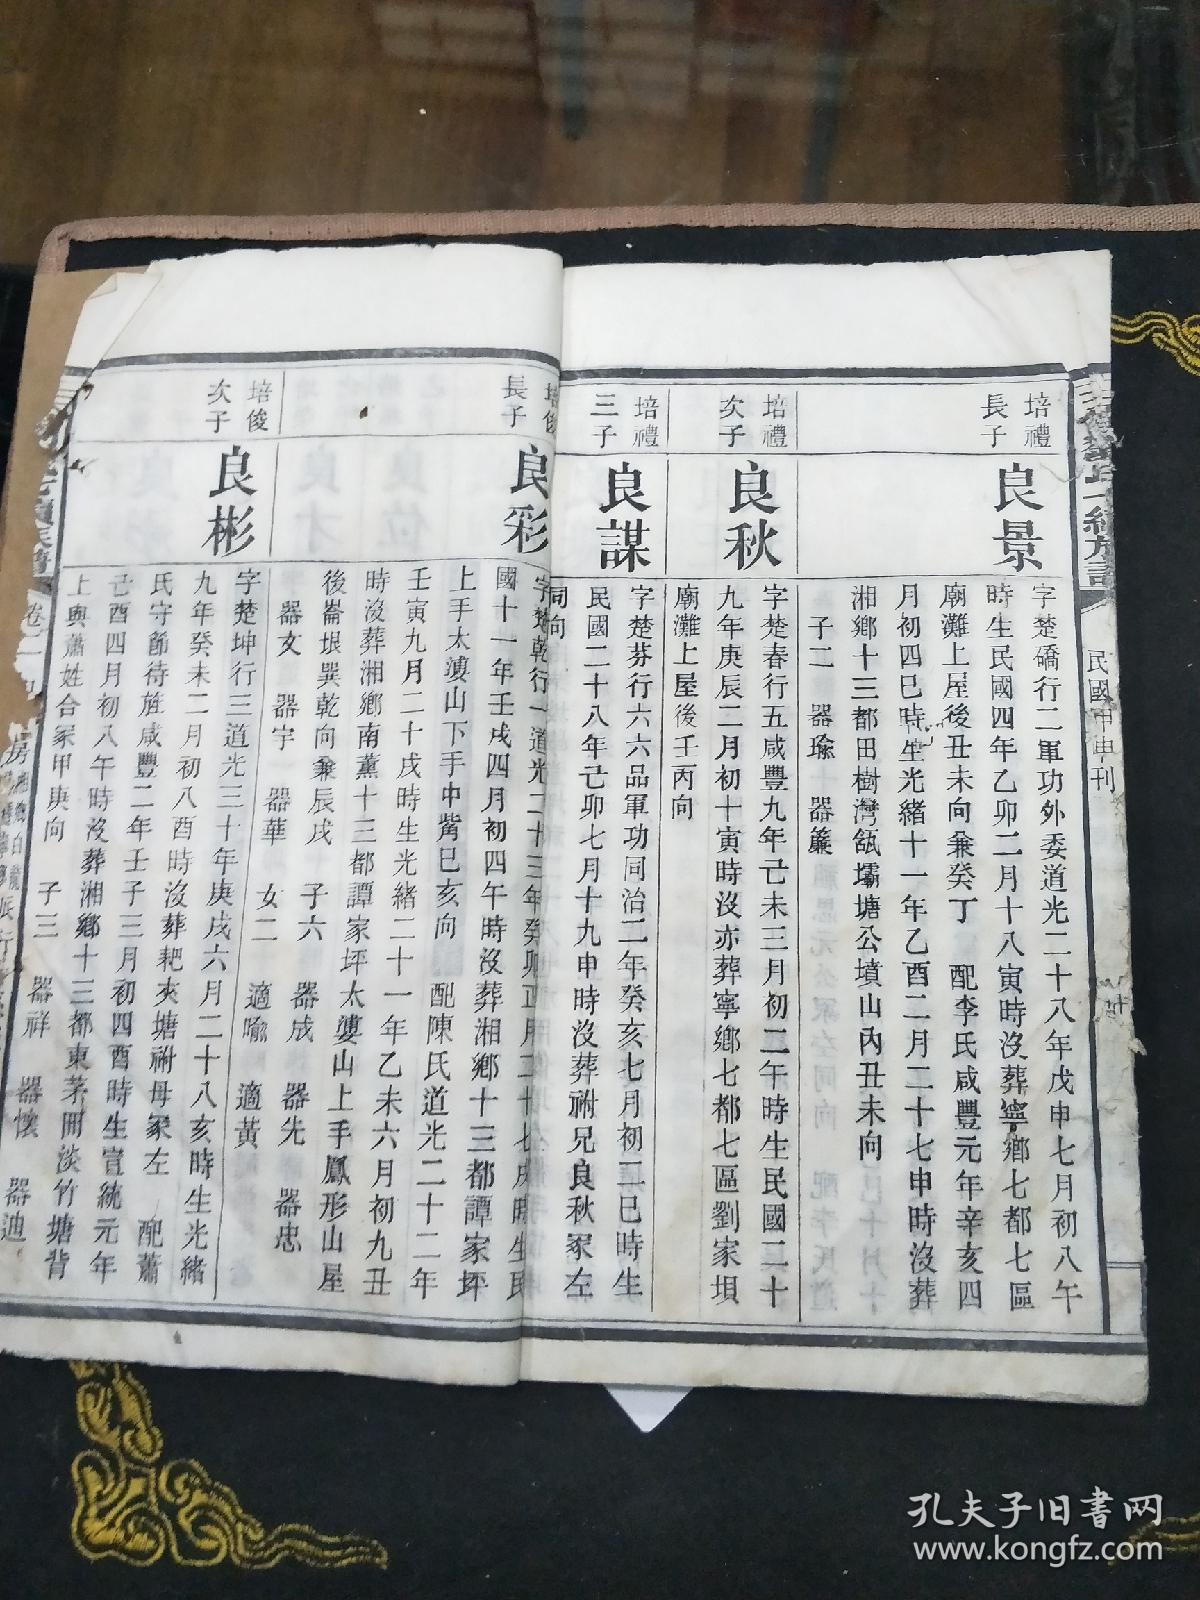 民國甲申刊
培禮
長子
良景
字楚礄行二軍功外委道光二十八年戊申七月初八午
時生民國四年乙卯二月十八寅時沒葬寧鄉七都七區
廟灘上屋後丑未向兼癸丁　配李氏咸豐元年辛亥四
月初四巳時生光緒十一年乙酉二月二十七申時沒葬
湘鄉十三都田樹灣瓴壩塘公墳山內丑未向
子二　器瑜　器簾
培禮
次子
良秋
字楚春行五咸豐九年己未三月初二午時生民國二十
九年庚辰二月初十寅時沒亦葬寧鄉七都七區劉家垻
廟灘上屋後壬丙向
培禮
三子
良謀
字楚芬行六六品軍功同治二年癸亥七月初二巳時生
民國二十八年己卯七月十九申時沒葬祔兄良秋冢左
同向
培俊
長子
良彩
字楚乾行一道光二十三年癸卯正月二十七戌時生民
國十一年壬戌四月初四午時沒葬湘鄉十三都譚家坪
上手太婆山下手中觜巳亥向　配陳氏道光二十二年
壬寅九月二十戌時生光緒二十一年乙未六月初九丑
時沒葬湘鄉南薰十三都譚家坪太婆山上手鳳形山屋
後崙垠巽乾向兼辰戌　子六　器成　器先　器忠
器文　器宇　器華　女二　適喻　適黃
培俊
次子
良彬
字楚坤行三道光三十年庚戌六月二十八亥時生光緒
九年癸未二月初八酉時沒葬耙夾塘祔母冢左　配蕭
氏守節待旌咸豐二年壬子三月初四酉時生宣統元年
己酉四月初八午時沒葬湘鄉十三都東茅冊淡竹塘背
上與蕭姓合冢甲庚向　子三　器祥　器懷　器迪
卷二
孔夫子旧书网
www.kongfz.com